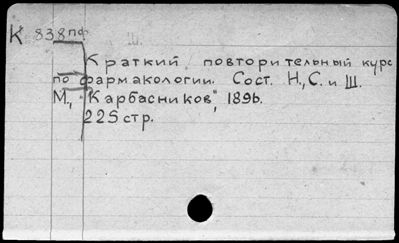 К 838 пф
Ш.
Краткий повторительный курс
по фармакологии. Сост. Н., С. и Ш.
М., "Карбасников", 1896.
225 стр.